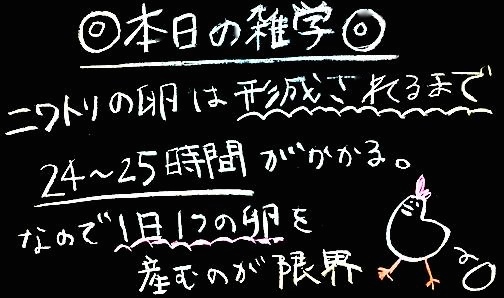 ◎本日の雑学◎
ニワトリの卵は形成されるまで
24～25時間がかかる。
なので1日1つの卵を
産むのが限界